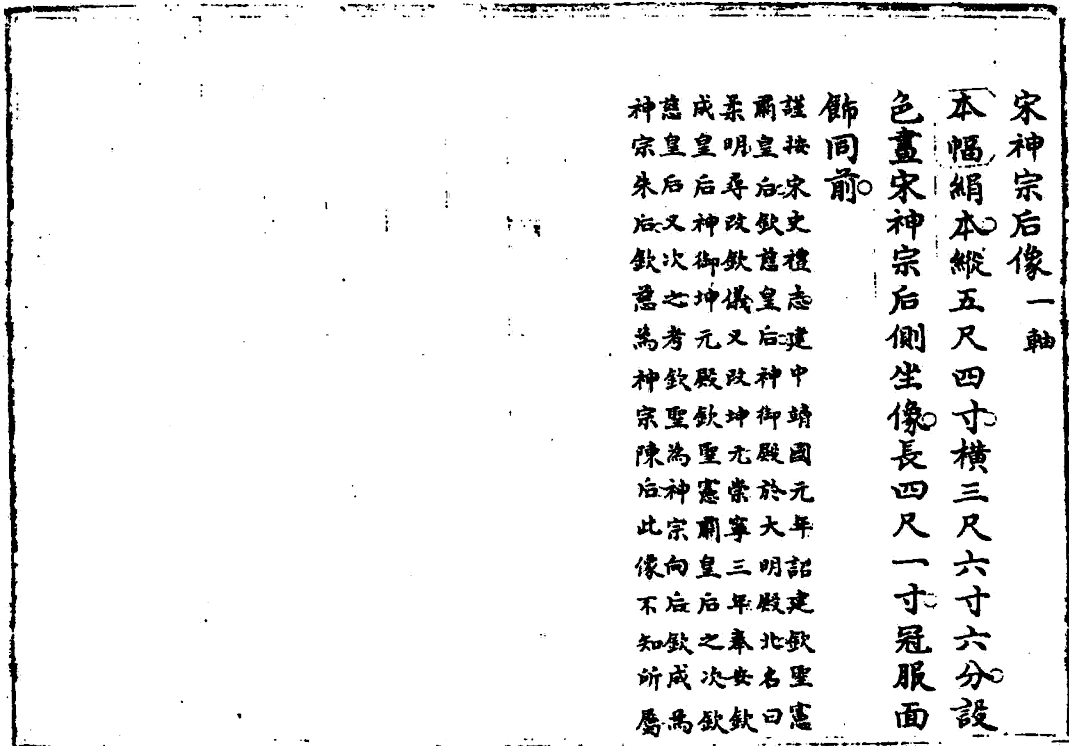 宋神宗后像一軸
本幅絹本縱五尺四寸橫三尺六寸六分設
色畫宋神宗后側坐像長四尺一寸冠服面
飾同前
謹按宋史禮志建中靖國元年詔建欽聖憲
肅皇后欽慈皇后神御殿於大明殿北名曰
柔明尋改欽儀又改坤元崇寧三年奉安欽
成皇后神御坤元殿欽聖憲肅皇后之次欽
慈皇后又次之考欽聖為神宗向后欽成為
神宗朱后欽慈為神宗陳后此像不知所屬